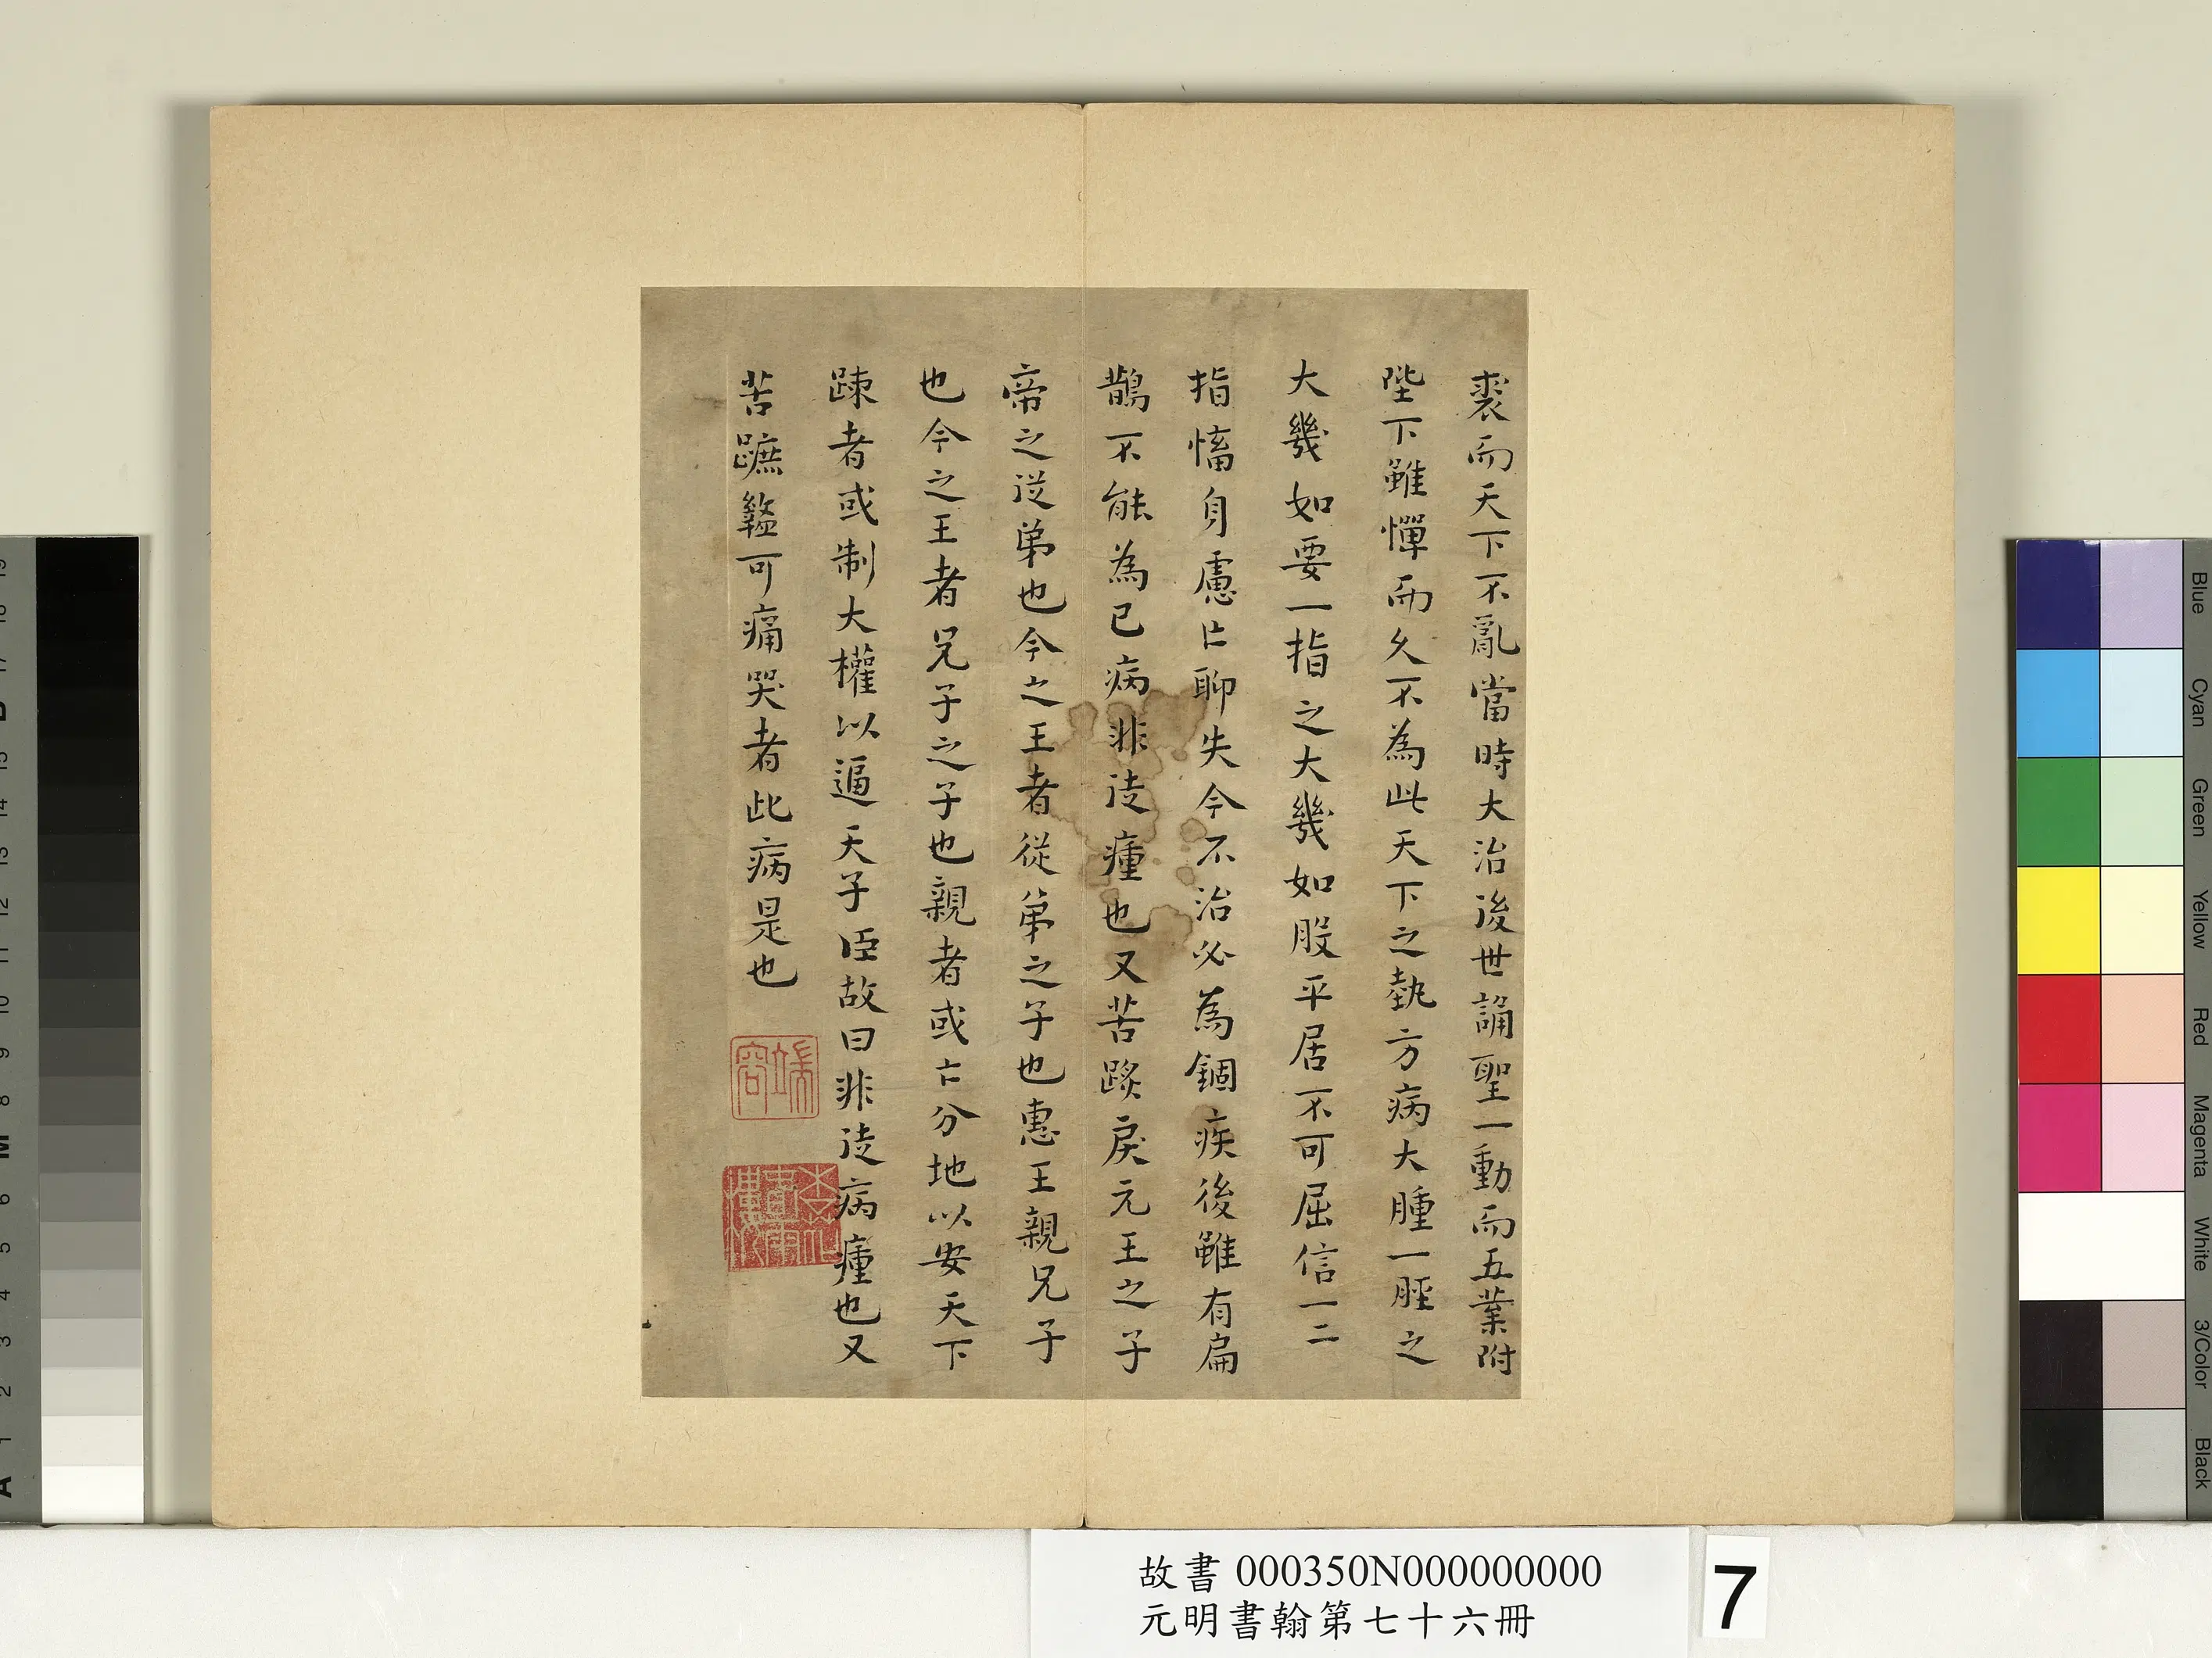 裘而天下不亂當時大治後世誦聖一動而五業附
陛下雖憚而久不為此天下之埶方病大腫一脛之
大幾如要一指之大幾如股平居不可屈信一二
指慉身慮亡聊失今不治必為錮疾後雖有扁
鵲不能為已病非徒瘇也又苦戾元王之子
帝之從弟也今之王者從弟之子也惠王親兄子
也今之王者兄子之子也親者或亡分地以安天下
踈者或制大權以逼天子臣故曰非徒病瘇也又
苦蹠盭可痛哭者此病是也
端容
故書 000350N000000000
元明書翰第七十六冊
7
Blue
Cyan
Green
Yellow
Red
Magenta
White
3/Color
Black